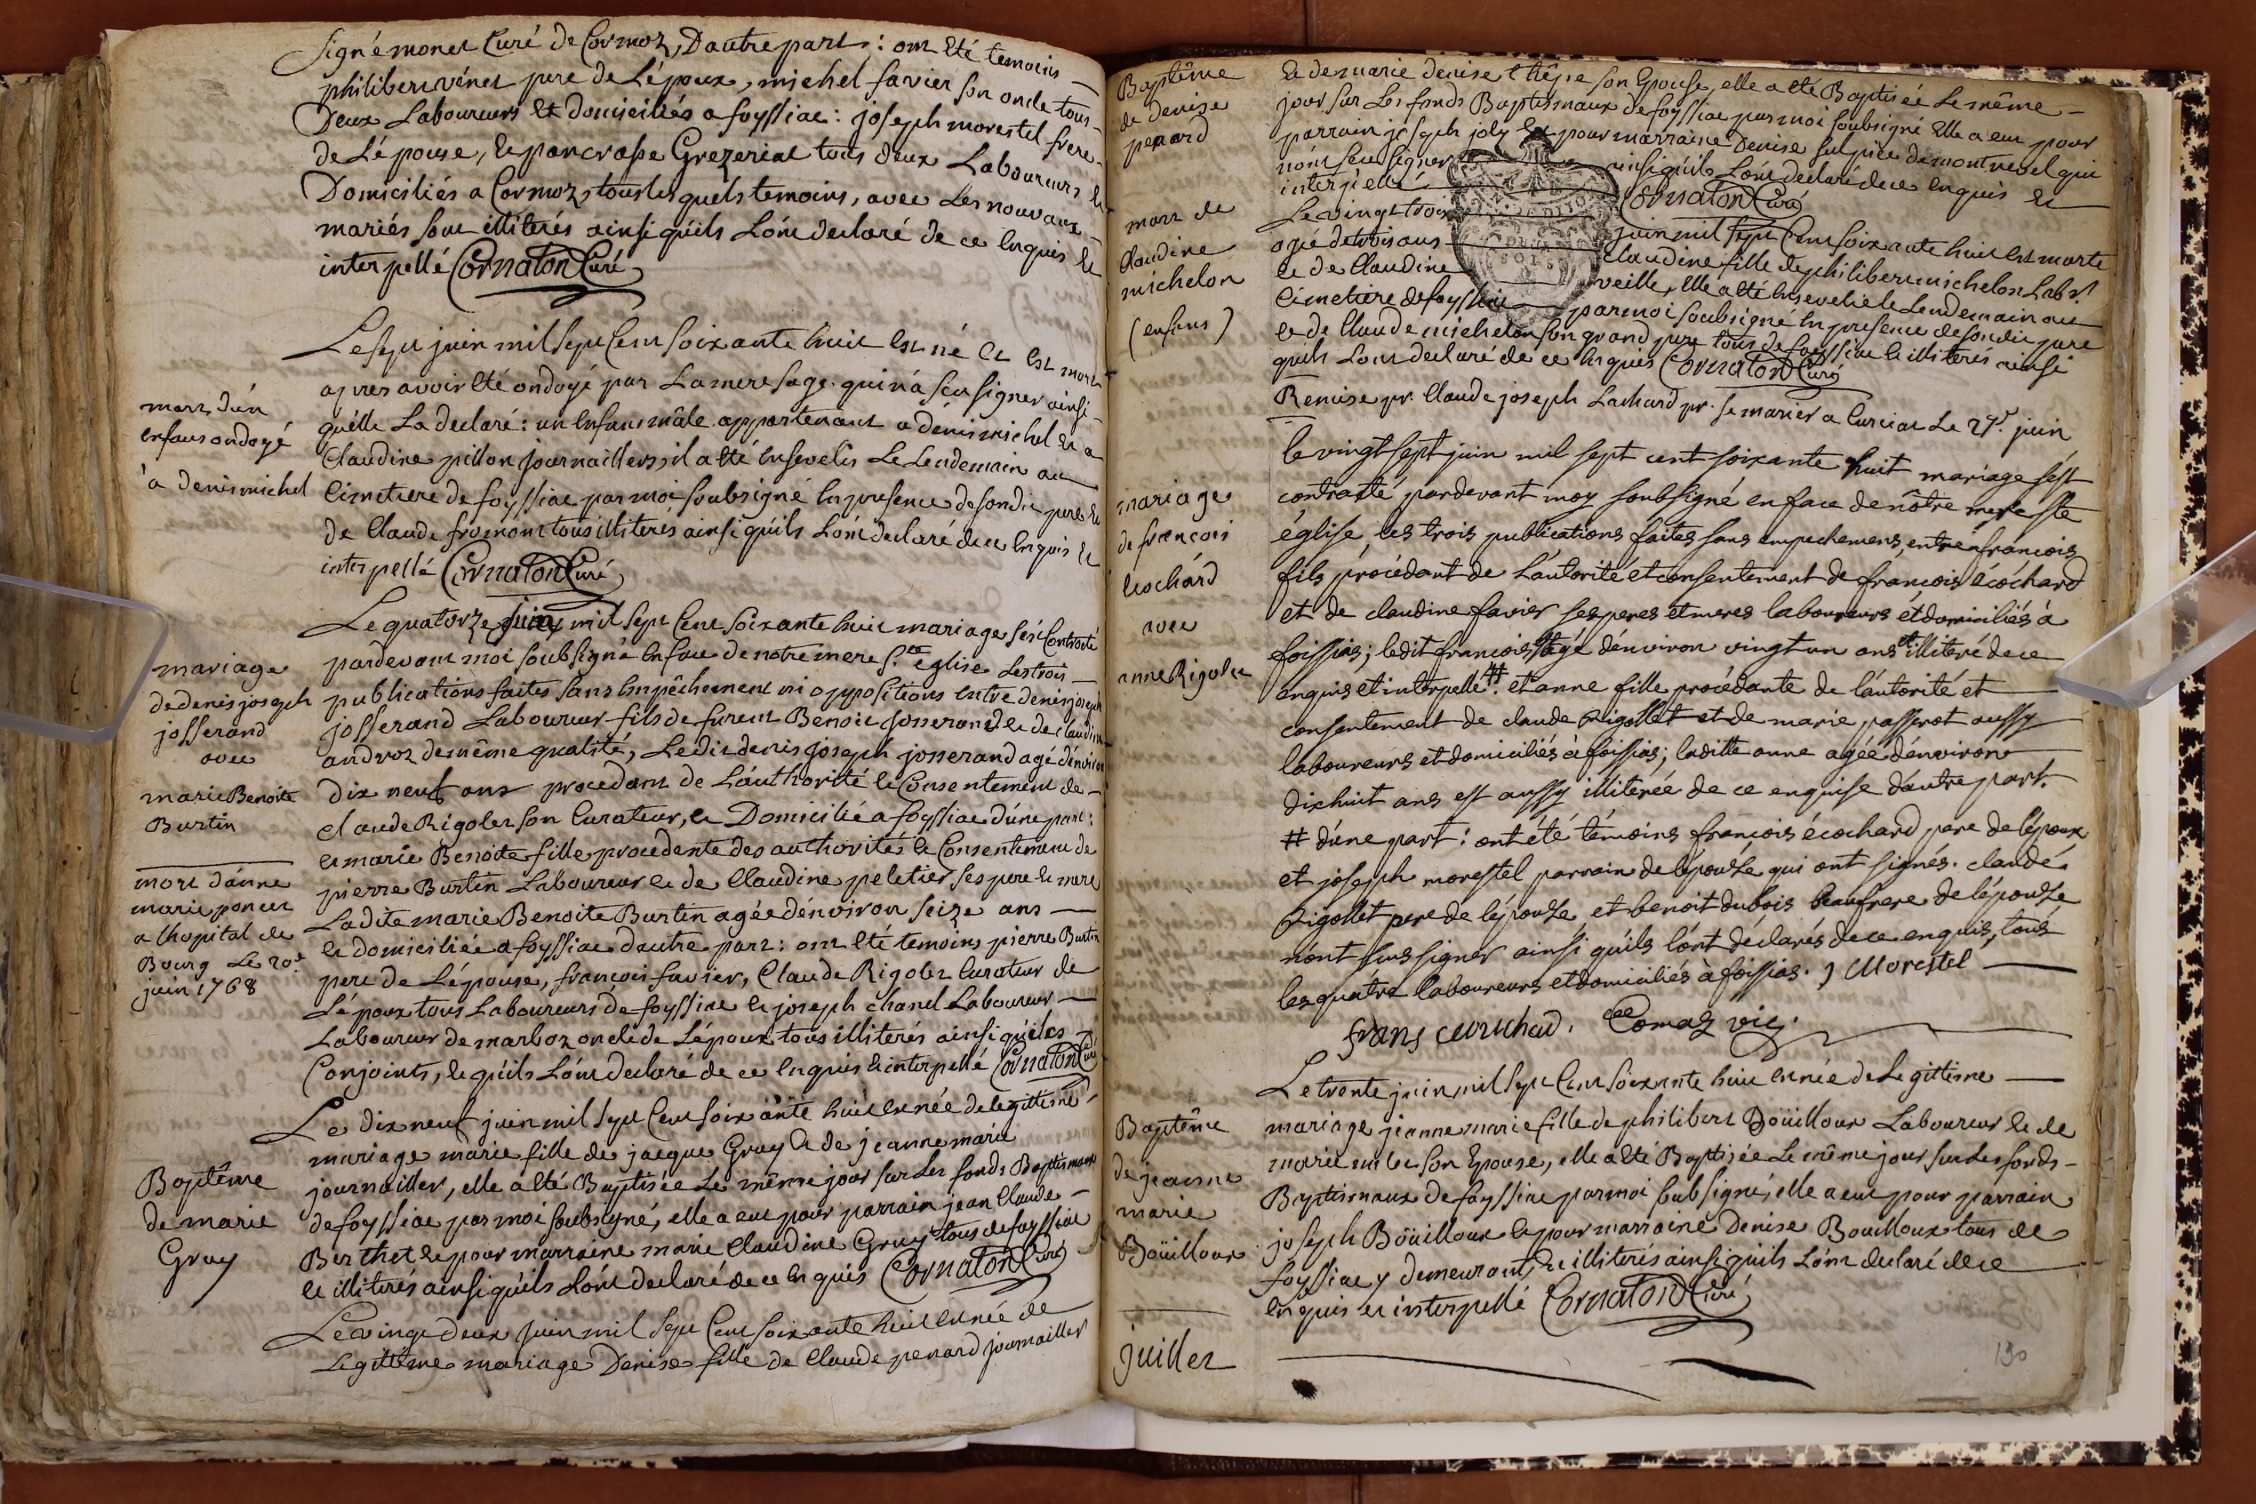 signé monet Curé de Cormoz, D'autre part : ont été temoins
philibert vénet pere de L'époux, michel favier son oncle tous
Deux Laboureurs et domiciliés a foyssiac : joseph morestel frere
de L'épouse, et pancrasse Grezeriat tous deux Laboureurs et
Domiciliés a Cormoz, tous les quels temoins, avec les nouvaux
mariés sont illiterés ainsi qu'ils L'ont declaré de ce Enquis et
interpellé Cornaton Curé
mort d'ún
enfant ondoyé
à denis michel
Le sept juin mil sept Cent soixante huit est né et est mort
apres avoir été ondoyé par La mere sage qui n'a sçu signer ainsi
qu'elle La declaré : un enfant mâle appartenant a denis michel et a
Claudine pillon journailliers, il a été Enseveli Le Lendemain au
Cimetiere de foyssiac par moi soubsigné En presence de son dit pere et
de Claude fromont tous illiterés ainsi qu'ils L'ont declaré de ce Enquis et
interpellé Cornaton Curé
mariage
de denis joseph
josserand
avec
marie Benoite
Burtin
Le quatorze juin mil sept Cent soixante huit mariage s'est Contracté
pardevant moi soubsigné En face de notre mere Ste église Les trois
publications faites sans Empêchement ni oppositions entre denis joseph
josserand Laboureur fils de furent Benoit josserand et de claudine
androz de même qualité, Le dit denis joseph josserand agé d'environ
dix neuf ans procedant de L'áuthorité et Consentement de
claude Rigolet son Curateur, et Domicilié a foyssiac d'úne part :
et marie Benoite fille procedente des authorités et Consentement de
pierre Burtin Laboureur et de Claudine peletier ses pere et mere
La dite marie Benoite Burtin agée d'énviron seize ans
et domiciliée a foyssiac d'autre part : ont été temoins pierre Burtin
pere de L'épouse, francois favier, Claude Rigolet Curateur de
L'époux tous Laboureurs de foyssiac et joseph chanel Laboureur
Laboureur de marboz oncle de L'époux tous illiterés ainsi que les
Conjoints, et qu'ils L'ont declaré de ce Enquis et interpellé Cornaton Curé
mort d'ánne
marie poncet
a l'hopital de
Bourg Le 20e
juin 1768
Baptême
de marie
Gruy
Le dix neuf juin mil sept Cent soixante huit est née de legitime
mariage marie fille de jacque Gruy et de jeanne marie
journaillier, elle a été Baptisée Le même jour sur Les fonds Baptismaux
de foyssiac par moi soubsigné, elle a eut pour parrain jean Claude
Berthet et pour marraine marie Claudine Gruy tous de foyssiac
et illiterés ainsi qu'ils L'ont declaré de ce Enquis Cornaton Curé
Le vingt deux juin mil sept Cent soixante huit est née de
Legitime mariage Denise fille de Claude penard journaillier
Baptême
de denise
penard
et de marie denise son Epouse, elle a été Baptisée Le même
jour sur Les fonds Baptismaux de foyssiac par moi soubsigné Elle a eut pour
parrain joseph joly et pour marraine Denise sulpice de montrevel qui
n'ont sçu signer ainsi qu'ils L'ont declaré de ce Enquis et
interpellé Cornaton Curé
mort de
Claudine
michelon
(enfant)
Le vingt trois juin mil sept Cent soixante huit est morte
agé de trois ans claudine fille de philibert michelon Labr.
et de Claudine veille, Elle a été Ensevelie le Lendemain au
Cimetiere de foyssiac par moi soubsigné En presence de son dit pere
et de Claude michelon son grand pere tous de foyssiac et illiterés ainsi
qu'ils L'ont declaré de ce Enquis Cornaton Curé
Remise pr. Claude joseph Lachard pr. se marier a Curciat Le 27e juin
mariage
de francois
Ecochárd
avec
anne Rigolet
le vingt sept juin mil sept cent soixante huit mariage s'est
contracté pardevant moy soubsigné en face de nôtre mere ste
église, les trois publications faites sans empechemens, entre francois
fils procédant de l'áutorité et consentement de francois écochard
et de claudine favier ses peres et meres laboureurs et domiciliés à
foissias ; ledit francois agé d'énviron vingt un ans et illiteré de ce
enquis et interpellé # et anne fille procédante de l'áutorité et
consentement de claude Rigollet et de marie passerat aussy
laboureurs et domiciliés à foissias ; laditte anne agée d'énviron
dixhuit ans est aussy illiterée de ce enquise d'autre part.
# d'úne part : ont été témoins francois écochard pere de l'époux
et joseph morestel parrain de l'épouse qui ont signés. claude
Rigollet pere de l'épouse et benoit dubois beaufrere de l'épouse
n'ont sçus signer ainsi qu'ils l'ont déclarés de ce enquis, tous
les quatre laboureurs et domiciliés à foissias. J Morestel
Comaz vic.
Baptême
de jeanne
marie
Boüilloux
Le trente juin mil sept Cent soixante huit est née de Legittime
mariage jeanne marie fille de philibert Boüilloux Laboureur et de
marie son Epouse, elle a été Baptisée Le même jour sur Les fonds
Baptismaux de foyssiac par moi subsigné, elle a eut pour parrain
joseph Boüilloux et pour marraine Denise Bouilloux tous de
foyssiac y demeurants et illiterés ainsi qu'ils L'ont declaré de ce
Enquis et interpellé Cornaton Curé
juillet
130